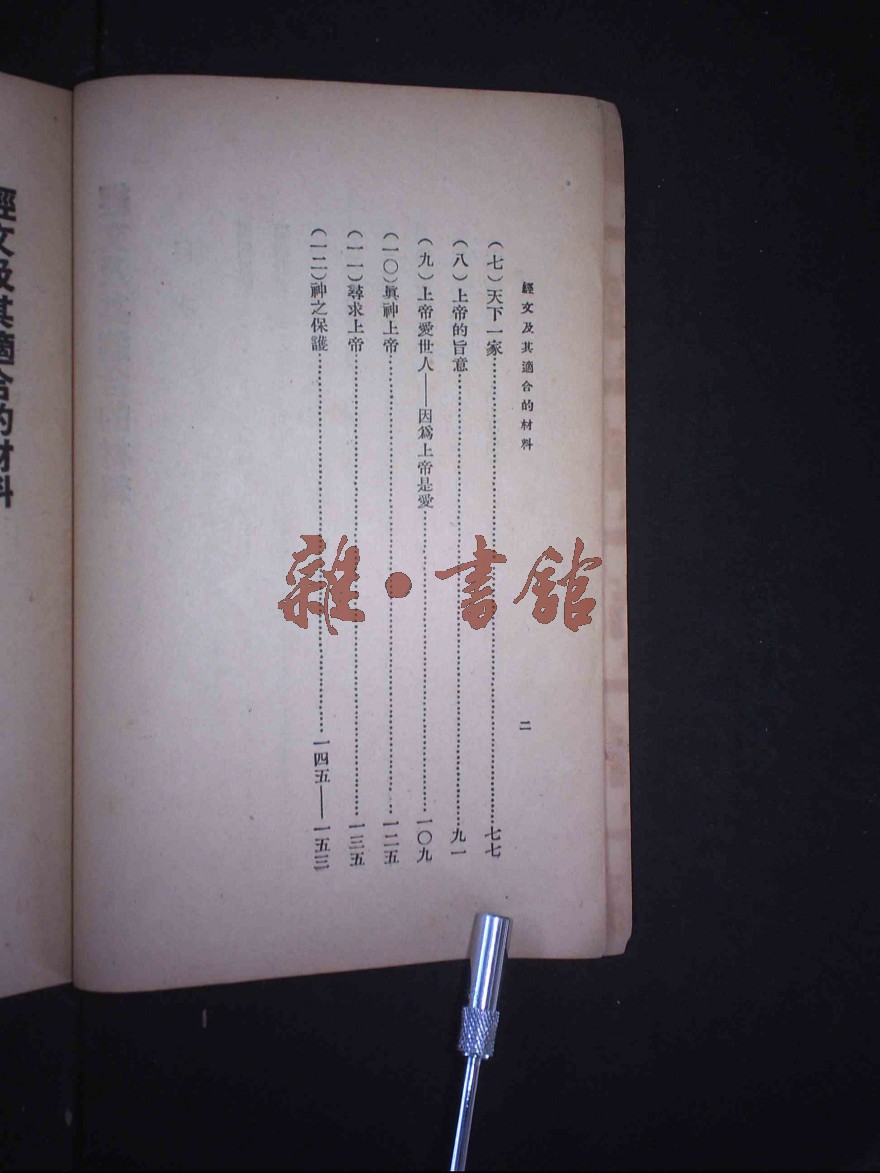 經文及其適合的材料
二
（七）天下一家……七七
（八）上帝的旨意……九一
（九）上帝愛世人——因爲上帝是愛……一〇九
（一〇）眞神上帝……一二五
（一一）尋求上帝……一三五
（一二）神之保護……一四五——一五三
經文及其適合的材料
雜·書館